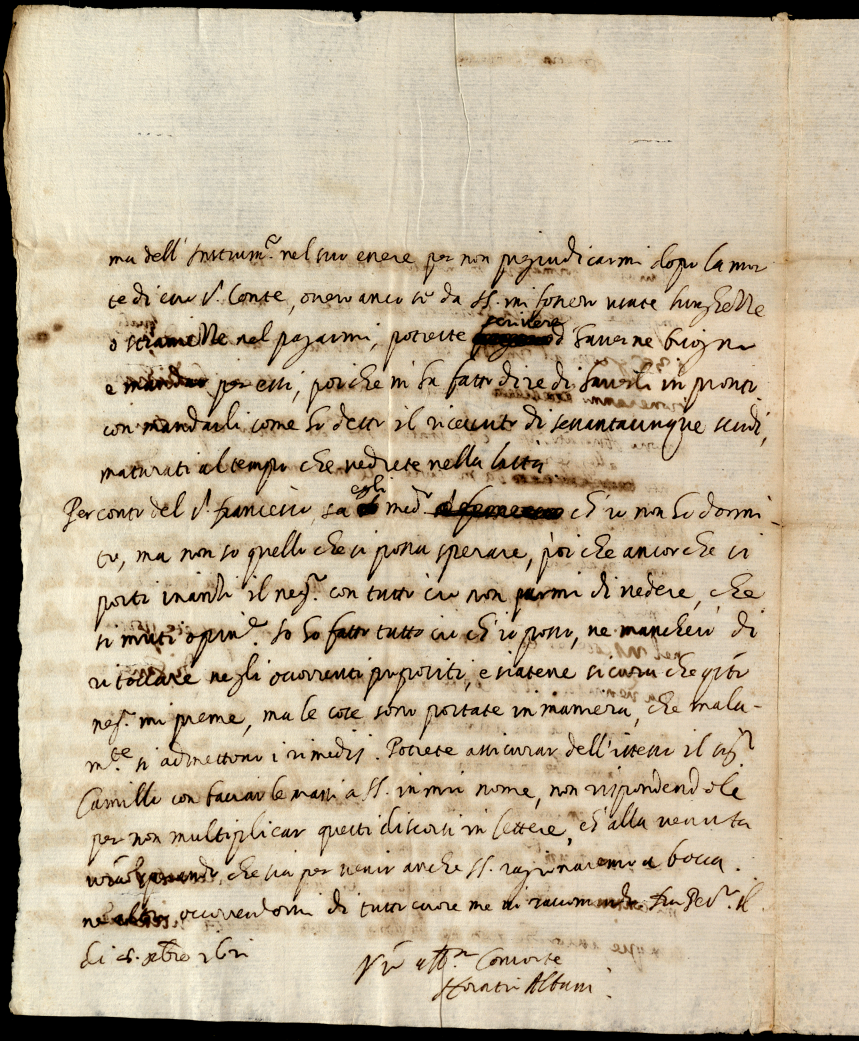 ma dell' Instrum.to nel suo essere per non pregiudicarmi dopo la mor
te di esso s.r Conte, overo anco se da SS. mi fossero usate lunghezze
o stranezze nel pagarmi, potreste scrivere d'haverne bisogno
e per essi, poiche mi ha fatto dire di haverli in pronto
con mandarli come ho detto il ricevuto di sessantacinque scudi,
maturati al tempo che vedrete nella lista
Per conto del s.r francesco, sa egli med.o ch'io non ho dormi
to, ma non so quello che si possa sperare, poi che ancor che si
porti inanzi il neg.o con tutto cio non parmi di vedere, che
si muti opin.e Io ho fatto tutto cio ch'io posso, ne mancherò di
ritoccare negli occorrenti propositi, e siatene sicura che q.sto
neg.o mi preme, ma le cose sono portate in maniera, che mala-
m.te si admettono i rimedij. Potrete assicurar dell'istesso il sig.r
Camillo con baciar le mani a SS. in mio nome, non rispondendole
per non multiplicar questi discorsi in lettere, ch'alla venuta
vostra sperando, che sia per venir anche SS. ragionaremo a bocca.
ne altro occorrendomi di tutto cuore me vi raccomando. Da Pes.o il
di 8.bre 1621
V.ro aff.mo Consorte
Horatio Albani